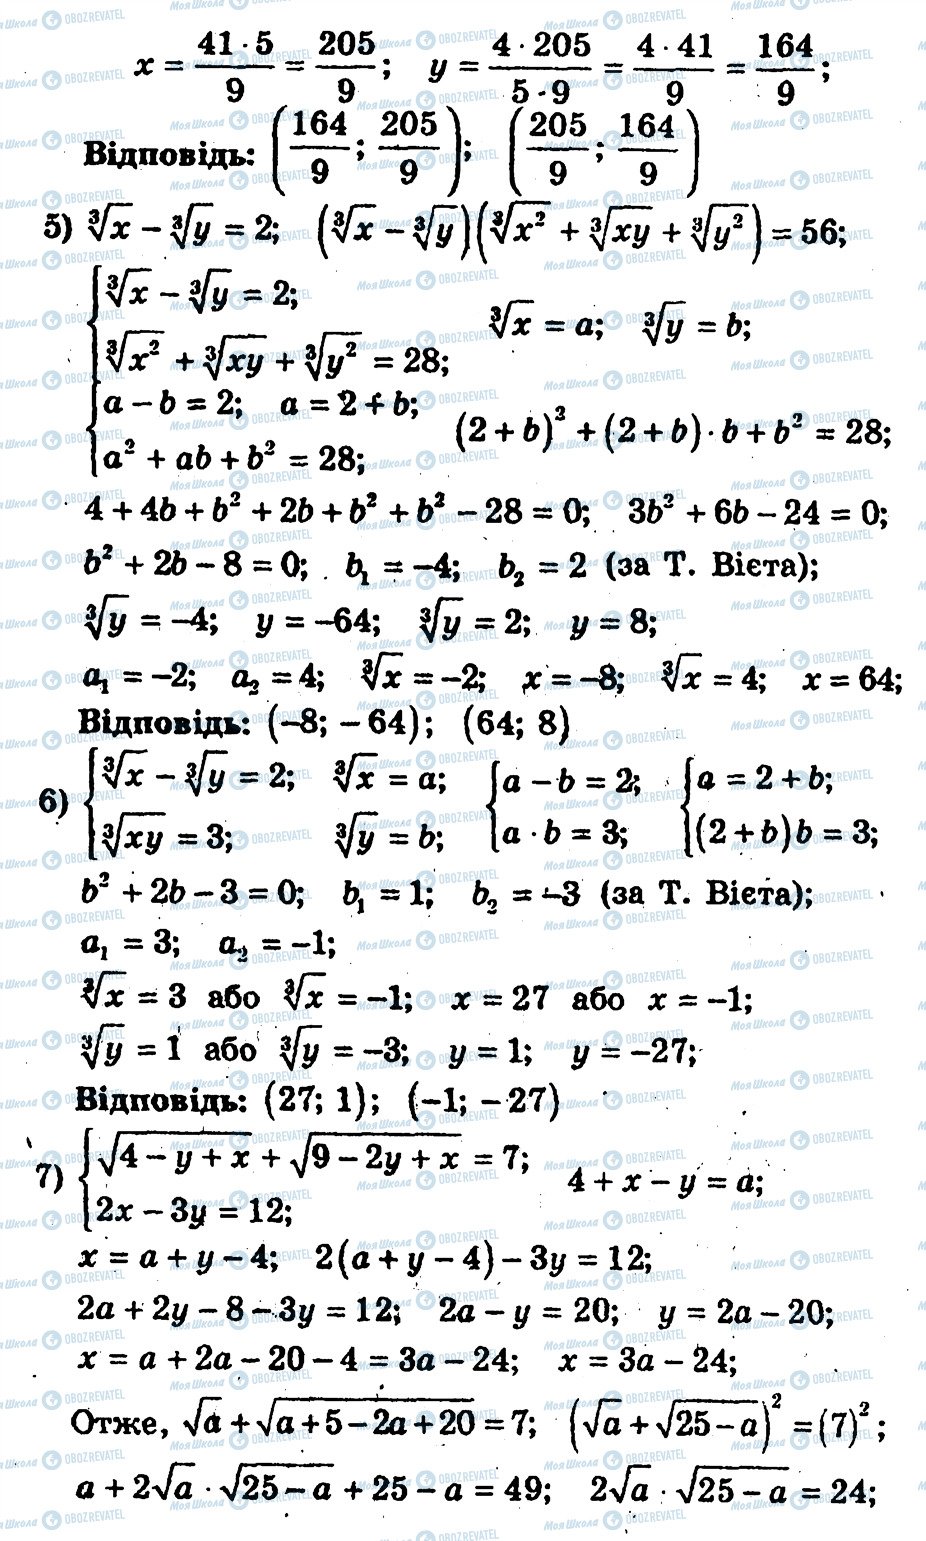 x = \frac{41 \cdot 5}{9} = \frac{205}{9}; y = \frac{4 \cdot 205}{5 \cdot 9} = \frac{4 \cdot 41}{9} = \frac{164}{9};
Відповідь: (\frac{164}{9}; \frac{205}{9}); (\frac{205}{9}; \frac{164}{9})
5) ∛x − ∛y = 2; (∛x − ∛y)(∛x² + ∛xy + ∛y²) = 56;
{∛x − ∛y = 2;
∛x² + ∛xy + ∛y² = 28; ∛x = a; ∛y = b;
{a − b = 2; a = 2 + b;
a² + ab + b² = 28; (2 + b)² + (2 + b) · b + b² = 28;
4 + 4b + b² + 2b + b² + b² − 28 = 0; 3b² + 6b − 24 = 0;
b² + 2b − 8 = 0; b₁ = −4; b₂ = 2 (за Т. Вієта);
∛y = −4; y = −64; ∛y = 2; y = 8;
a₁ = −2; a₂ = 4; ∛x = −2; x = −8; ∛x = 4; x = 64;
Відповідь: (−8; −64); (64; 8)
6) {∛x − ∛y = 2; ∛x = a; {a − b = 2; {a = 2 + b;
∛xy = 3; ∛y = b; a · b = 3; (2 + b)b = 3;
b² + 2b − 3 = 0; b₁ = 1; b₂ = −3 (за Т. Вієта);
a₁ = 3; a₂ = −1;
∛x = 3 або ∛x = −1; x = 27 або x = −1;
∛y = 1 або ∛y = −3; y = 1; y = −27;
Відповідь: (27; 1); (−1; −27)
7) {√(4 − y + x) + √(9 − 2y + x) = 7;
2x − 3y = 12; 4 + x − y = a;
x = a + y − 4; 2(a + y − 4) − 3y = 12;
2a + 2y − 8 − 3y = 12; 2a − y = 20; y = 2a − 20;
x = a + 2a − 20 − 4 = 3a − 24; x = 3a − 24;
Отже, √a + √(a + 5 − 2a + 20) = 7; (√a + √(25 − a))² = (7)²;
a + 2√a · √(25 − a) + 25 − a = 49; 2√a · √(25 − a) = 24;